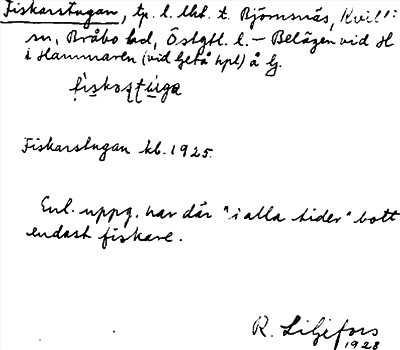 Fiskarstugan, tp. l. lht. t. Björnsnäs, Kvill:
m, Bråbo hd, Östgtl. l. – Belägen vid H
i Hammaren (vid Getå hpl) å G.
fiskaʂtúga
Fiskarstugan kb. 1925.
Enl. uppg. har där "i alla tider" bott
endast fiskare.
R. Liljefors
1928